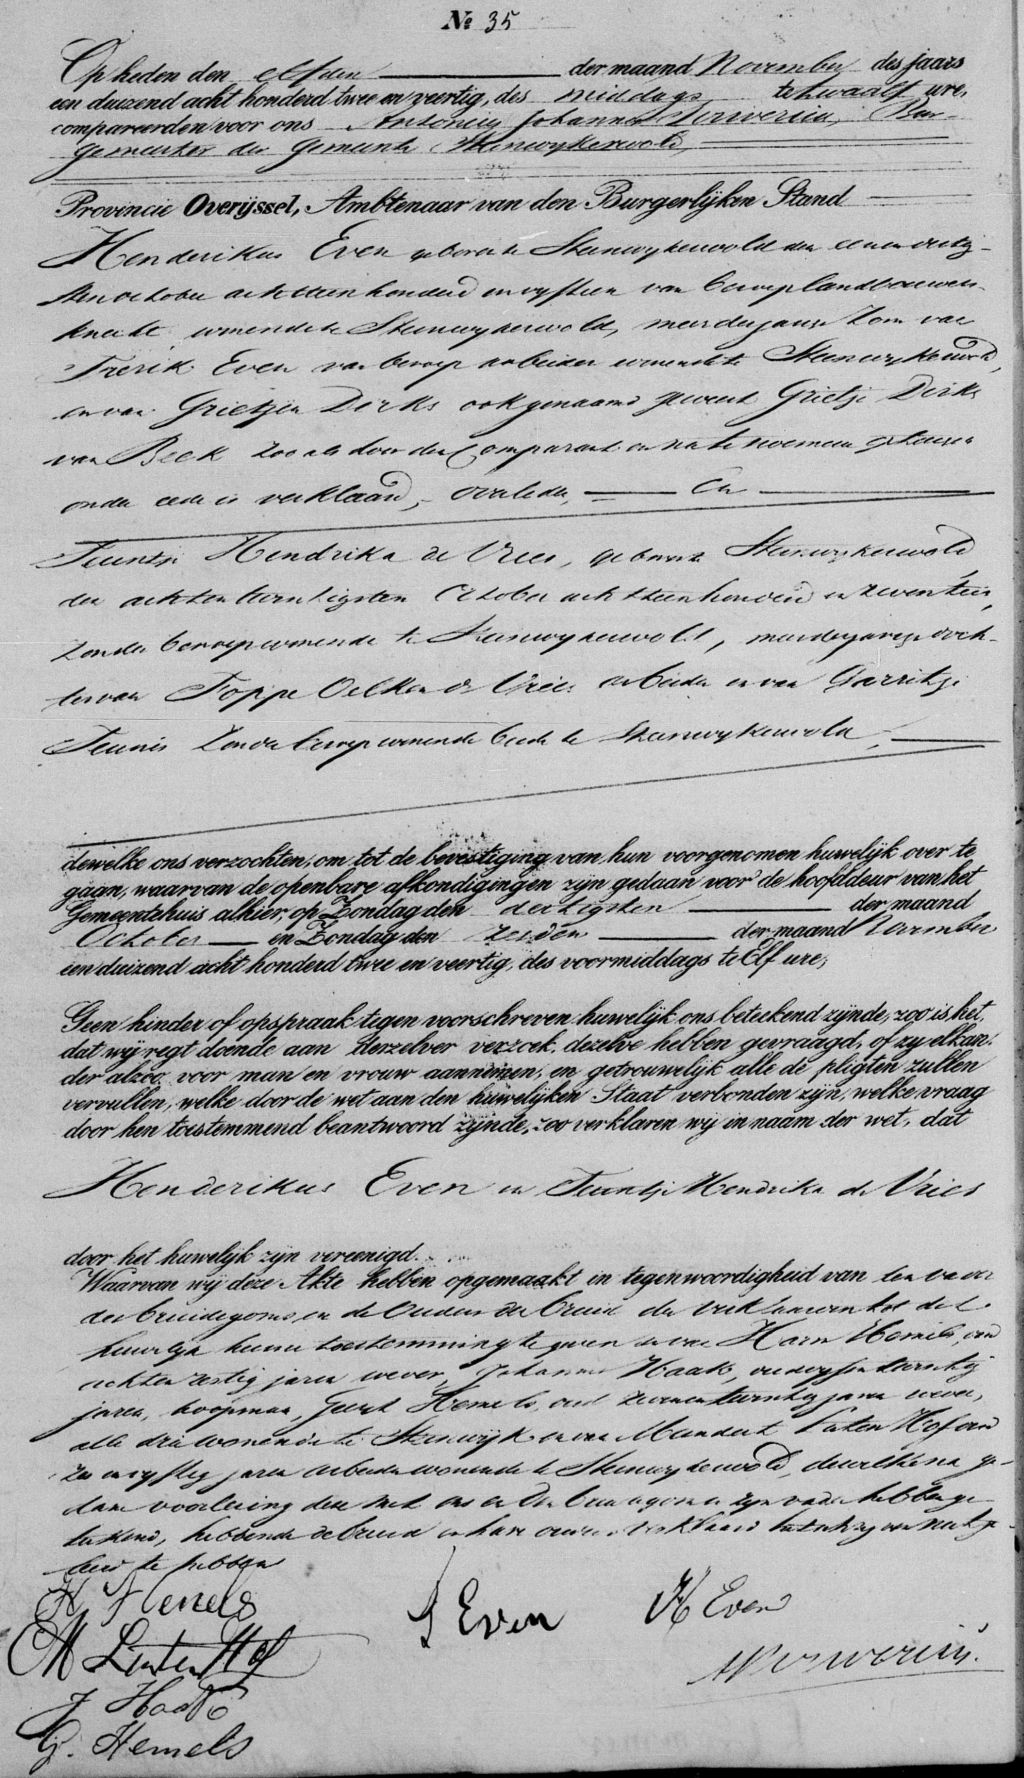 No 35
Op heden den elfden der maand November des jaars
een duizend acht honderd twee en veertig, des middags te twaalf ure,
compareerden voor ons Antonius Johannes Verwerius, Bur-
gemeester der Gemeente Steenwykerwold,
Provincie Overijssel, Ambtenaar van den Burgerlijken Stand
Henderikus Even geboren te Steenwykerwold den eenentwintig-
sten october achttienhonderd en vyftien van beroep landbouwers-
knecht, wonende te Steenwykerwold, meerderjarige zoon van
Frerik Even van beroep arbeider wonende te Steenwykerwold,
en van Grietjen Dirks ook genaamd geweest Grietje Dirks
van Beek zoo als door den Comparant en na te noemen getuigen
onder eede is verklaard, overleden, En
Teuntje Hendrika de Vries, geboren te Steenwykerwold,
den achtentwintigsten October achttienhonderd en zeventien,
zonder beroep wonende te Steenwykerwold, meerderjarige doch-
ter van Foppe Oelken de Vries arbeider en van Garritje
Teunis zonder beroep wonende beide te Steenwykerwold,
dewelke ons verzochten, om tot de bevestiging van hun voorgenomen huwelijk over te
gaan, waarvan de openbare afkondigingen zijn gedaan voor de hoofddeur van het
Gemeentehuis alhier, op Zondag den dertigsten der maand
October en Zondag den zesden der maand November
een duizend acht honderd twee en veertig, des voormiddags te Elf ure;
Geen hinder of opspraak tegen voorschreven huwelijk ons beteekend zijnde, zoo is het,
dat wij regt doende aan derzelver verzoek, dezelve hebben gevraagd, of zij elkan-
der alzoo voor man en vrouw aannemen, en getrouwelijk alle de pligten zullen
vervullen, welke door de wet aan den huwelijken Staat verbonden zijn, welke vraag
door hen toestemmend beantwoord zijnde, zoo verklaren wij in naam der wet, dat
Henderikus Even en Teuntje Hendrika de Vries
door het huwelijk zijn vereenigd.
Waarvan wij deze Akte hebben opgemaakt in tegenwoordigheid van den vader
des bruidegoms, en de Ouders der bruid die verklaarden tot dit
huwelyk hunne toestemming te geven en van Harm Hemels, oud
achtenzestig jaren wever, Johannes Haak, oud vyfentwintig
jaren, koopman, Geert Hemels, oud zevenentwintig jaren wever,
alle drie wonende te Steenwijk en van Meindert Luten Hof oud
zesenvyftig jaren arbeider wonende te Steenwykerwold, dewelke na ge-
dane voorlezing deze met ons en den bruidegom en zyn vader hebben ge-
teekend, hebbende de bruid en hare ouders verklaard het schryven niet ge-
leerd te hebben
H Hemels
M Luten Hof
J Haak
G. Hemels
F Even
H Even
Verwerius.